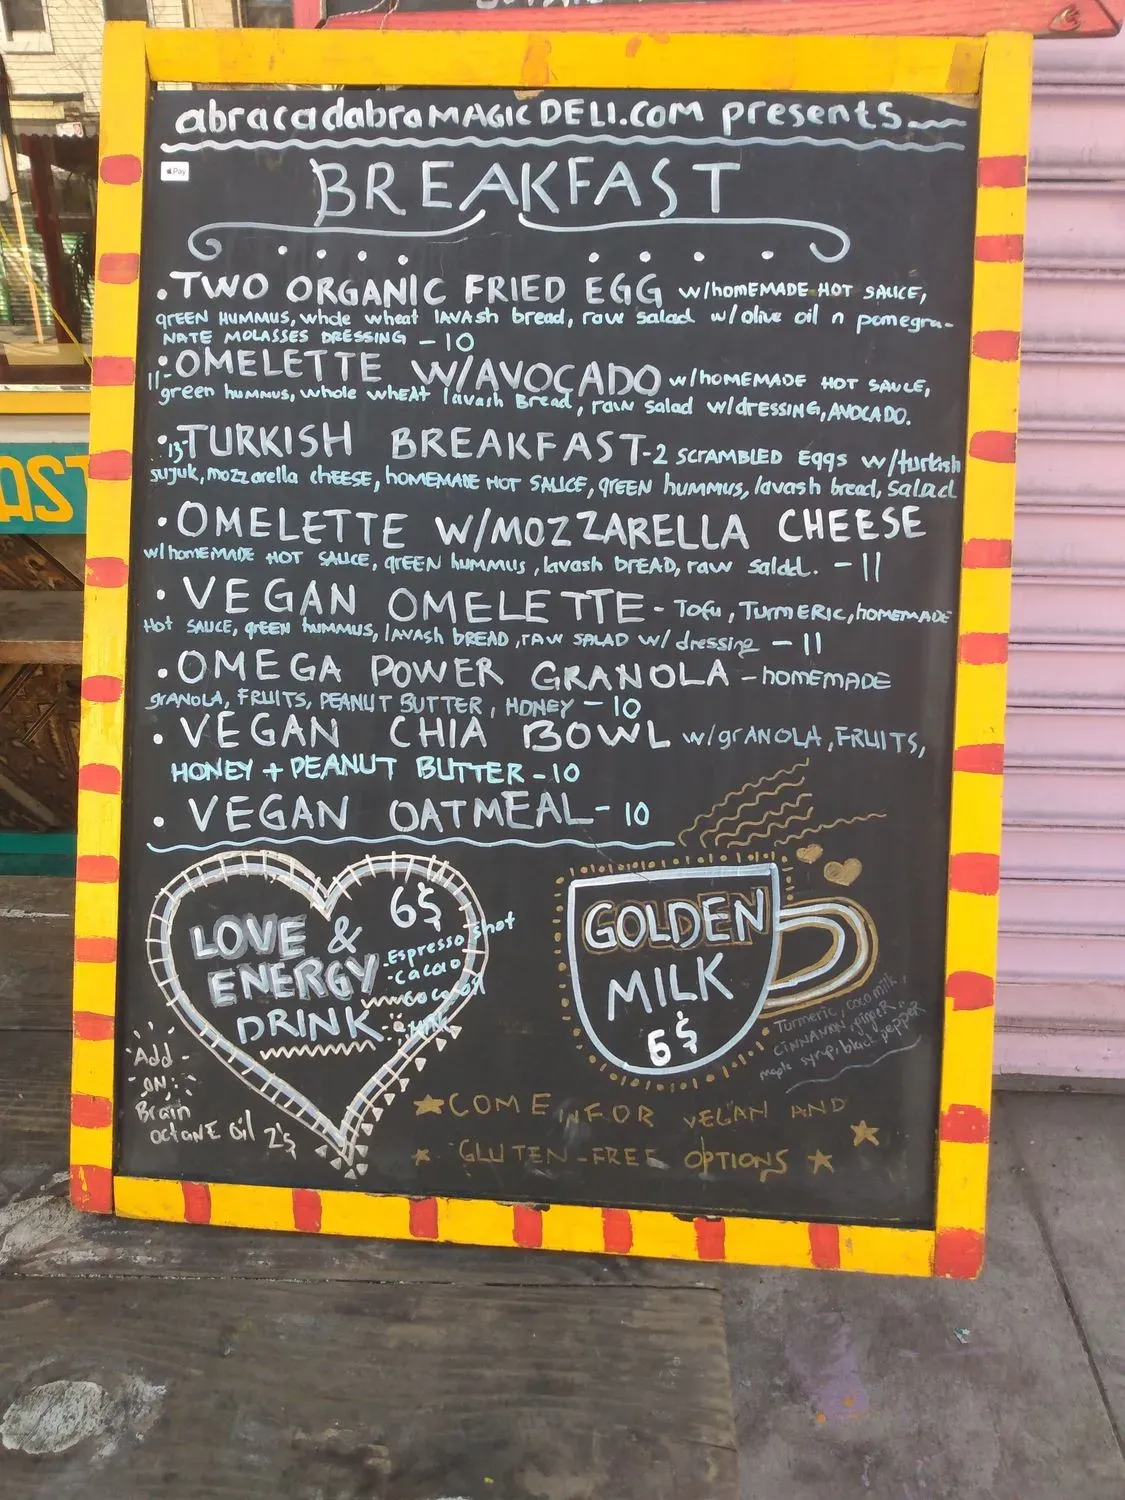 abracadabra MAGIC DELI.COM presents
Pay
BREAKFAST
• TWO ORGANIC FRIED EGG w/homEMADE HOT SAUCE,
gREEN HUMMUS, whole wheat lAVAsh bread, raw salad w/olive oil n pomegra-
NATE MOLASSES DRESSING - 10
• OMELETTE W/AVOCADO w/homEMADE HOT SAUCE,
11- green hummus, whole wheat lavash Bread, raw salad w/dRESSING, AVOCADO.
• 13- TURKISH BREAKFAST - 2 SCRAMBLED Eggs w/turkish
sujuk, mozzarella chEESE, hOMEMADE HOT SAUCE, gREEN hummus, lavash bread, salad
• OMELETTE W/MOZZARELLA CHEESE
w/homEMADE HOT SAUCE, gREEN hummus, lavash bREAD, raw salad. - 11
• VEGAN OMELETTE - Tofu, TURMERIC, homEMADE
Hot SAUCE, gREEN hummus, lAVASH bREAD, RAW SALAD w/ dressing - 11
• OMEGA POWER GRANOLA - homEMADE
gRANOLA, FRUITS, PEANUT BUTTER, HONEY - 10
• VEGAN CHIA BOWL w/grANOLA, FRUITS,
HONEY + PEANUT BUTTER - 10
• VEGAN OATMEAL - 10
LOVE & ENERGY DRINK
6$
-Espresso shot
-Cacao
Add-
ON:
Brain
octANE Oil 2$
GOLDEN
MILK
6$
Turmeric, coco milk,
CINNAMON, ginger
maple syrup, black pepper
COME in FOR VEGAN AND
GLUTEN-FREE OPTIONS